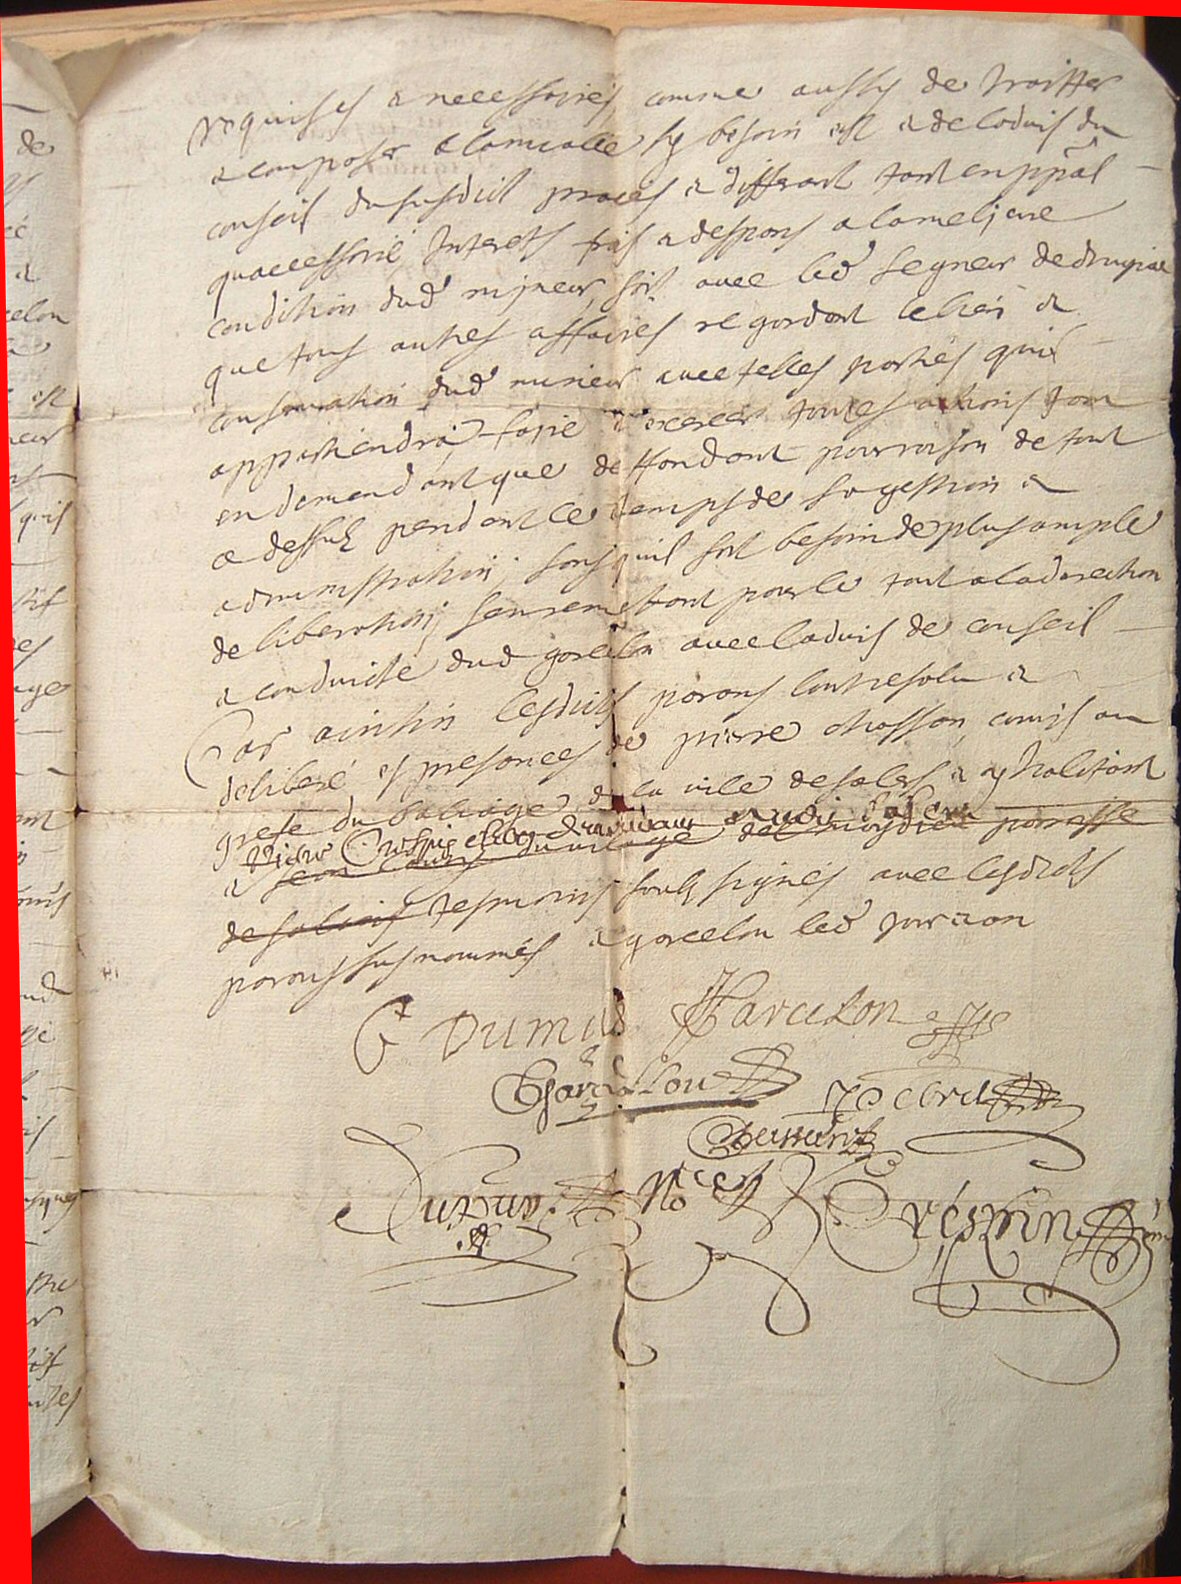 requises & necessaires, comme aussy de traitter
& composer a lamiable sy besoin est & de ladvis du
conseil du susdict proces & differant tant en ppal
quaccessoire, Interets frais & despans a la melieure
condition dud mineur, soit avec led segneur de
que tous autres affaires regardant le bien &
conservation dud mineur avec telles parties quil
appartiendra, faire & exercer toutes actions tant
en demandant que deffendant pour raison de tout
ce dessus pendant le temps de sa gestion &
administration, sans quil soit besoin de plus ample
deliberation, sen remettant pour le tout a la direction
& conduicte dud garcelon avec ladvis de conseil
Car ainsin lesdicts parans lont resolu &
deliberé es presances de pierre chosson, comis au
grefe du baliage de la vile de salers & y habitant
& du vilage de parroisse
de salers tesmoins soubs signés avec lesdicts
parans susnommés & garcelon led jour & an
DUMAS Garcelon
Garcellon
Crespin